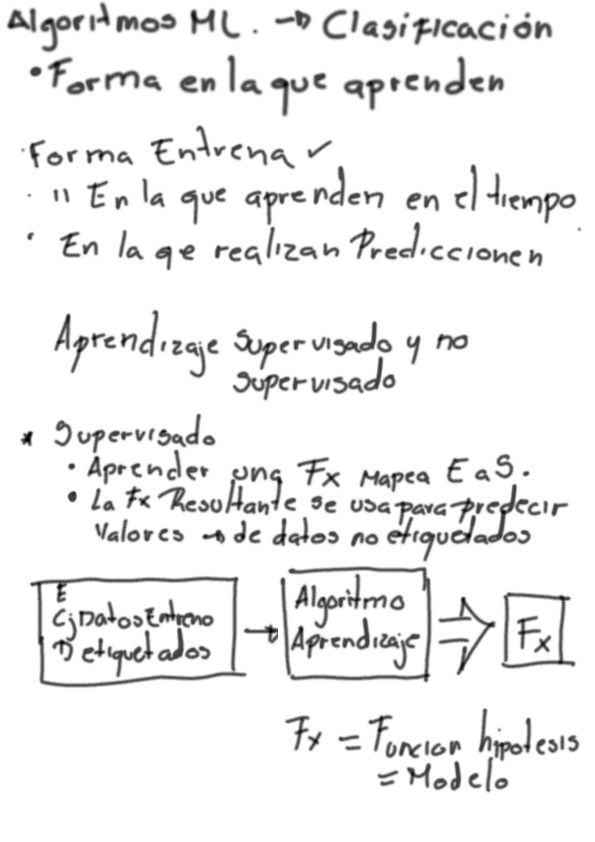 Algoritmos ML. → Clasificación
• Forma en la que aprenden
· Forma Entrena ✓
· " En la que aprenden en el tiempo
· En la qe realizan Prediccionen
Aprendizaje Supervisado y no
supervisado
* Supervisado
• Aprender una Fx Mapea E a S.
• La Fx Resultante se usa para predecir
Valores → de datos no etiquetados
E
Cj Datos Entreno
etiquetados
→
Algoritmo
Aprendizaje
⇒
Fx
Fx = Funcion hipotesis
= Modelo